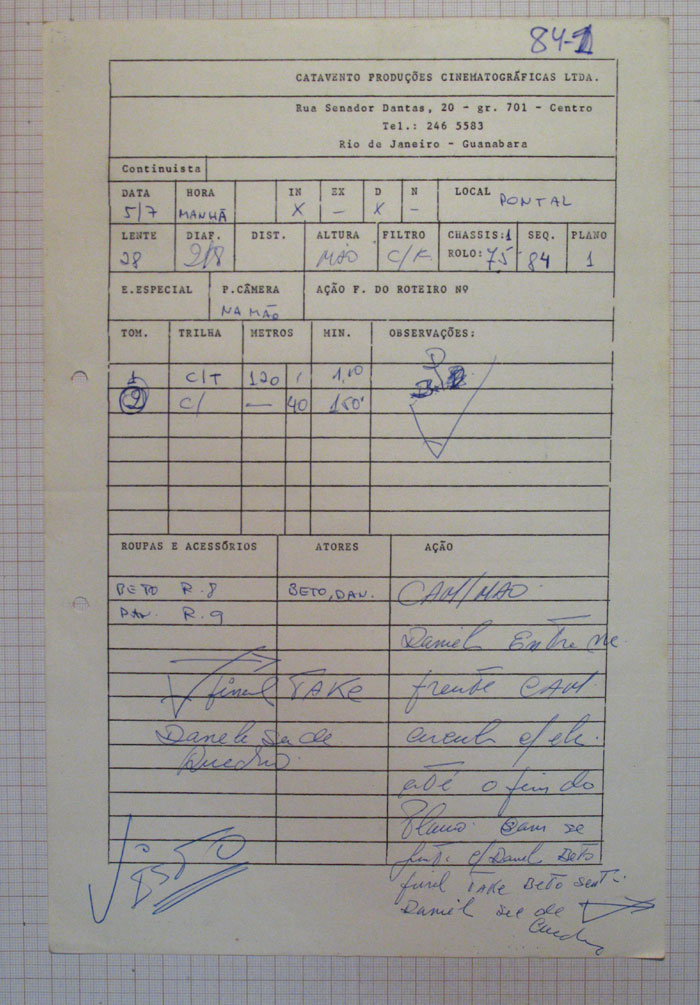 84-1
CATAVENTO PRODUÇÕES CINEMATOGRÁFICAS LTDA.
Rua Senador Dantas, 20 - gr. 701 - Centro
Tel.: 246 5583
Rio de Janeiro - Guanabara
Continuista
DATA HORA IN EX D N LOCAL PONTAL
5/7 MANHÃ X — X —
LENTE DIAF. DIST. ALTURA FILTRO CHASSIS:1 SEQ. PLANO
28 MÃO C/F. ROLO: 75 84 1
E.ESPECIAL P.CÂMERA AÇÃO F. DO ROTEIRO Nº
NA MÃO
TOM. TRILHA METROS MIN. OBSERVAÇÕES:
1 C/T 120
2 C/ — 40
ROUPAS E ACESSÓRIOS ATORES AÇÃO
BETO R.8 BETO, DAN. CAM/MAO
DAN. R.9
Daniel Entra na
final TAKE frente CAM
Daniel sai de
Quadro.
até o fim do
Plano. Cam se
c/Daniel Beto
final TAKE BETO
Daniel sai de
Quadro